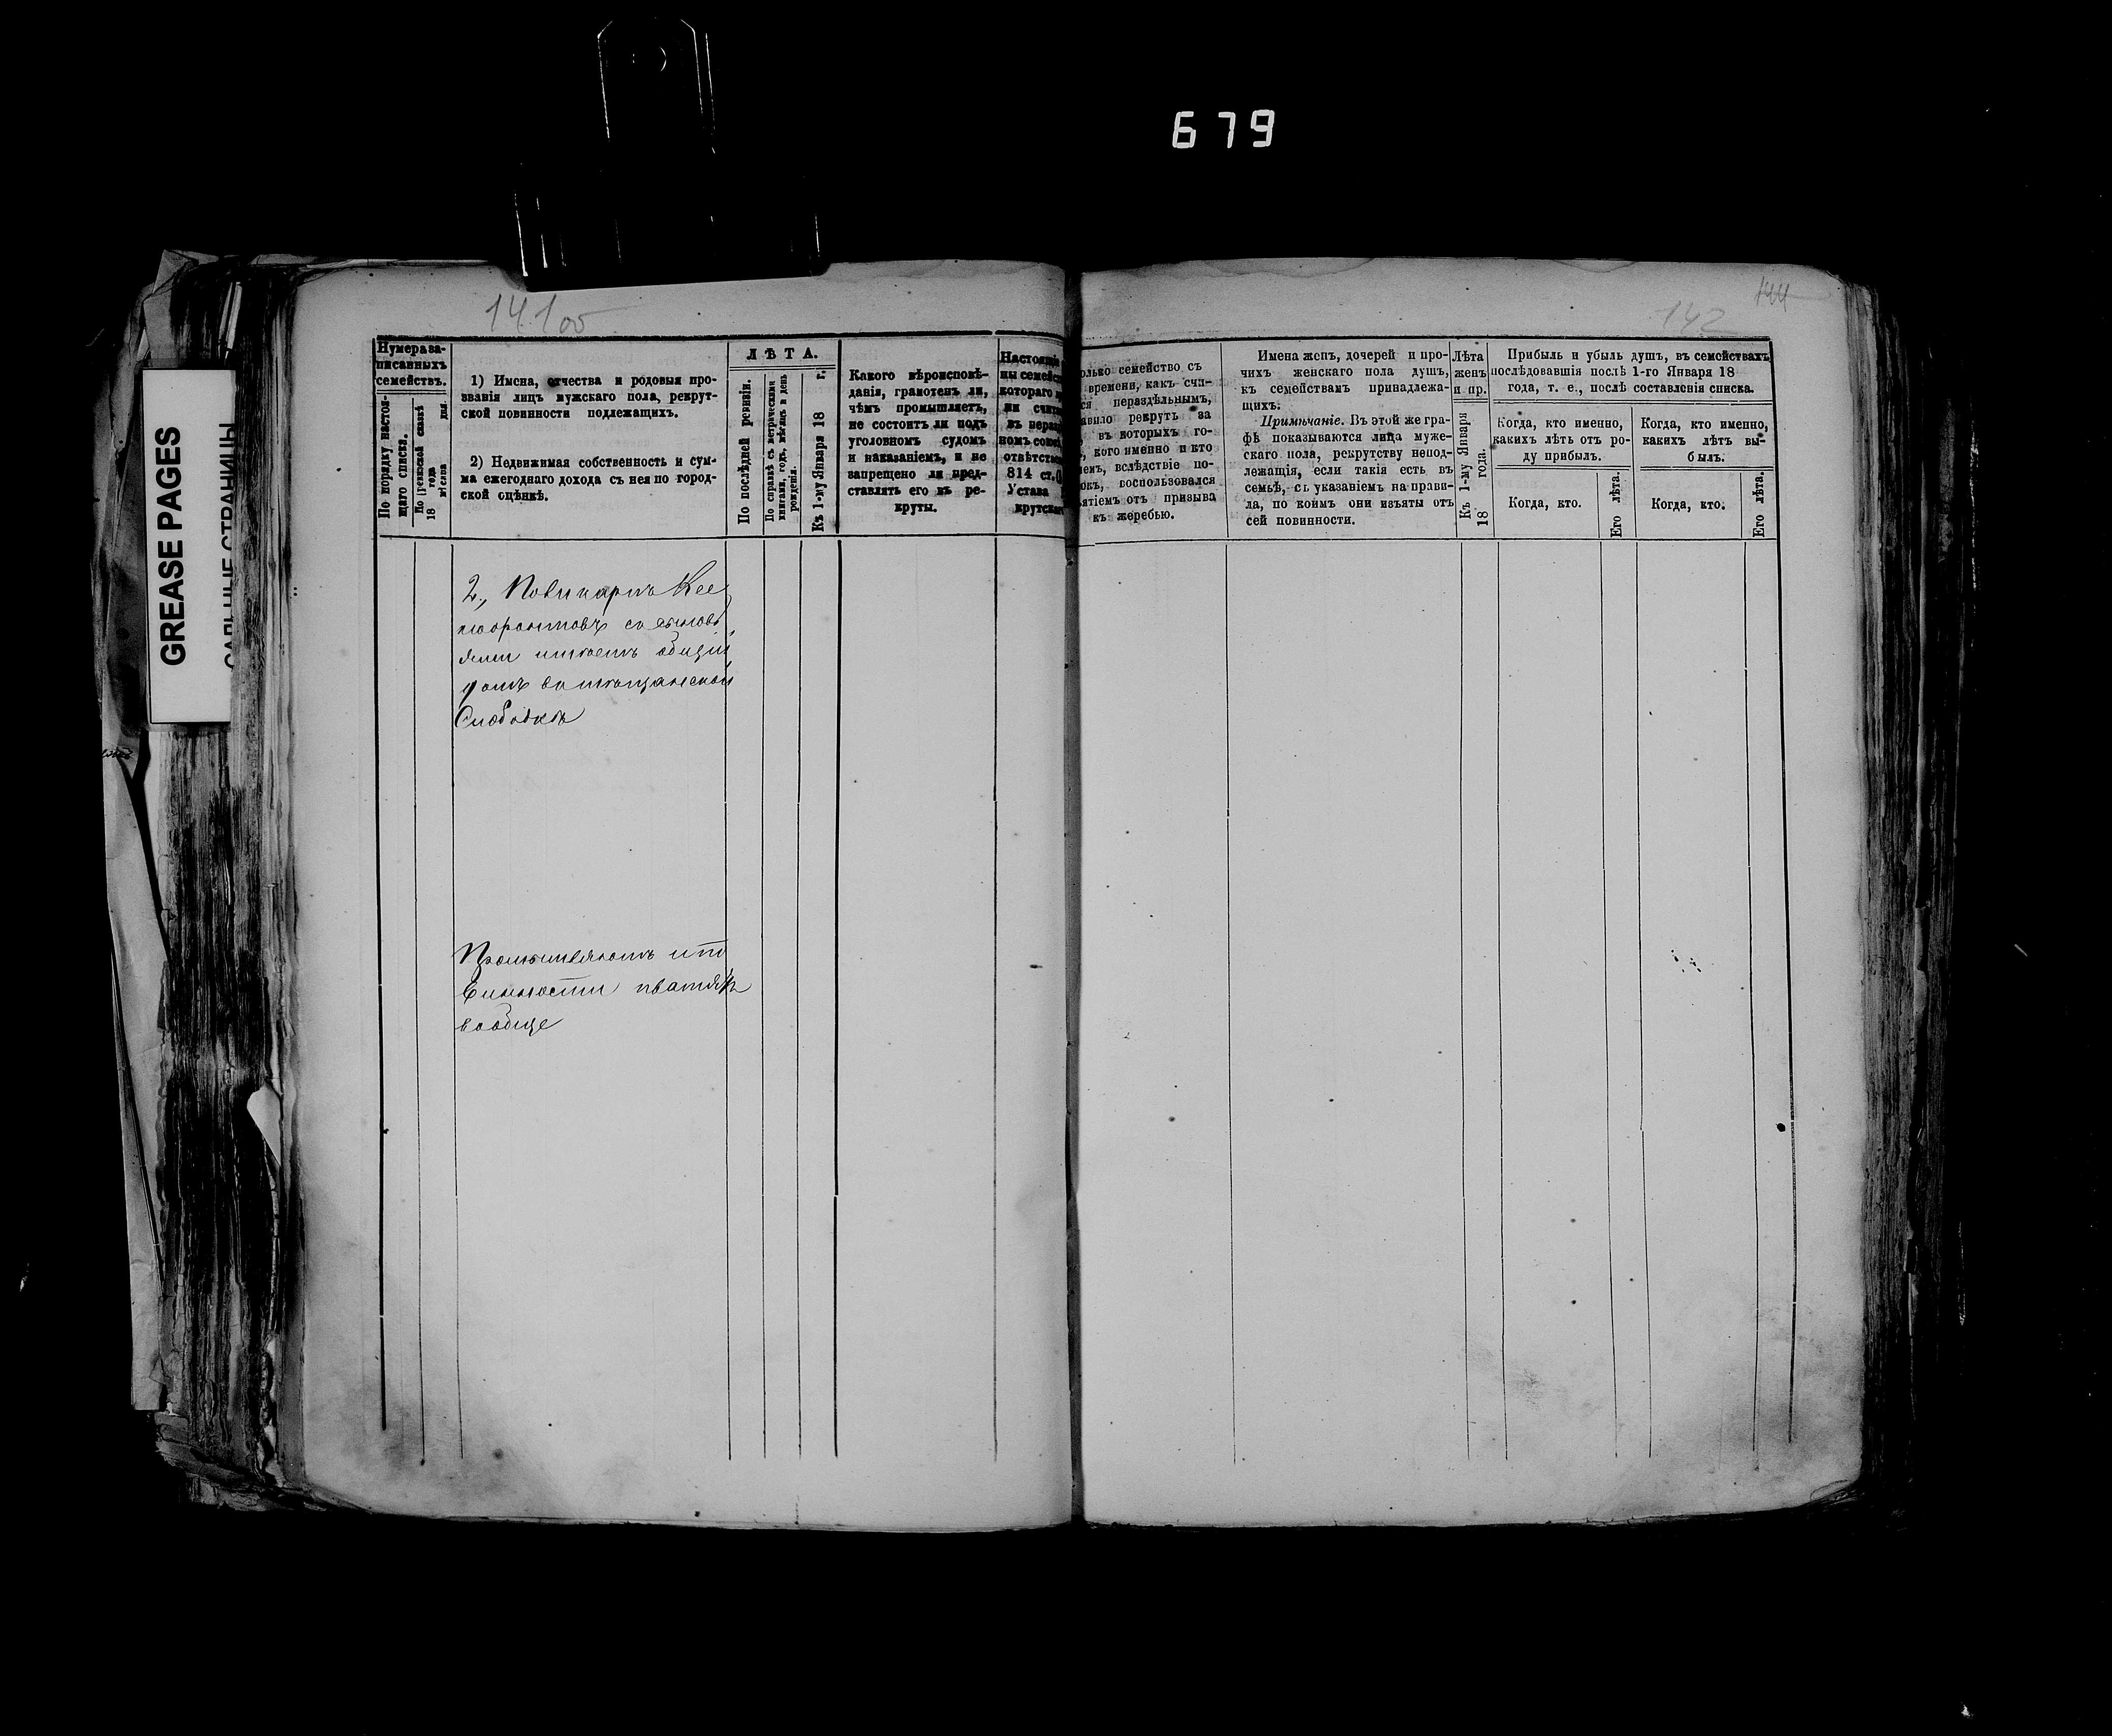 679
GREASE PAGES
САЛЬНЫЕ СТРАНИЦЫ
141об
142
144
Нумера за-
писанныхъ
семействъ.
По порядку настоя-
щаго списка.
По ревизской сказкѣ
18 года
мѣсяца дня.
1) Имена, отчества и родовыя про-
званія лицъ мужскаго пола, рекрут-
ской повинности подлежащихъ.
2) Недвижимая собственность и сум-
ма ежегоднаго дохода съ нея по город-
ской оцѣнкѣ.
ЛѢТА.
По послѣдней ревизіи.
По справкѣ съ метрическими
книгами, годъ, мѣсяцъ и день
рожденія.
Къ 1-му Января 18 г.
Какого вѣроисповѣ-
данія, грамотенъ ли,
чѣмъ промышляетъ,
не состоитъ ли подъ
уголовнымъ судомъ
и наказаніемъ, и не
запрещено ли пред-
ставлять его въ ре-
круты.
Настоящі
ны семейст
котораго
ли счит
въ нераз
номъ союз
отвѣтстве
814 ст.
Устава
крутскаг
олько семейство съ
времени, какъ счи-
ся нераздѣльнымъ,
авило рекрутъ за
въ которыхъ го-
, кого именно и кто
немъ, вслѣдствіе по-
окъ, воспользовался
ятіемъ отъ призыва
къ жеребью.
Имена женъ, дочерей и про-
чихъ женскаго пола душъ,
къ семействамъ принадлежа-
щихъ.
Примѣчаніе. Въ этой же гра-
фѣ показываются лица муже-
скаго пола, рекрутству непод-
лежащія, если такія есть въ
семьѣ, съ указаніемъ на прави-
ла, по коимъ они изъяты отъ
сей повинности.
Лѣта
женъ
и пр.
Къ 1-му Января
18 года.
Прибыль и убыль душъ, въ семействахъ
послѣдовавшія послѣ 1-го Января 18
года, т. е., послѣ составленія списка.
Когда, кто именно,
какихъ лѣтъ отъ ро-
ду прибылъ.
Когда, кто именно,
какихъ лѣтъ вы-
былъ.
Когда, кто.
Его лѣта.
Когда, кто.
Его лѣта.
2,
съ сыновь
ями имѣетъ общій
домъ въ мѣщанской
Слободкѣ
Промышляютъ и по
винности платятъ
вообще